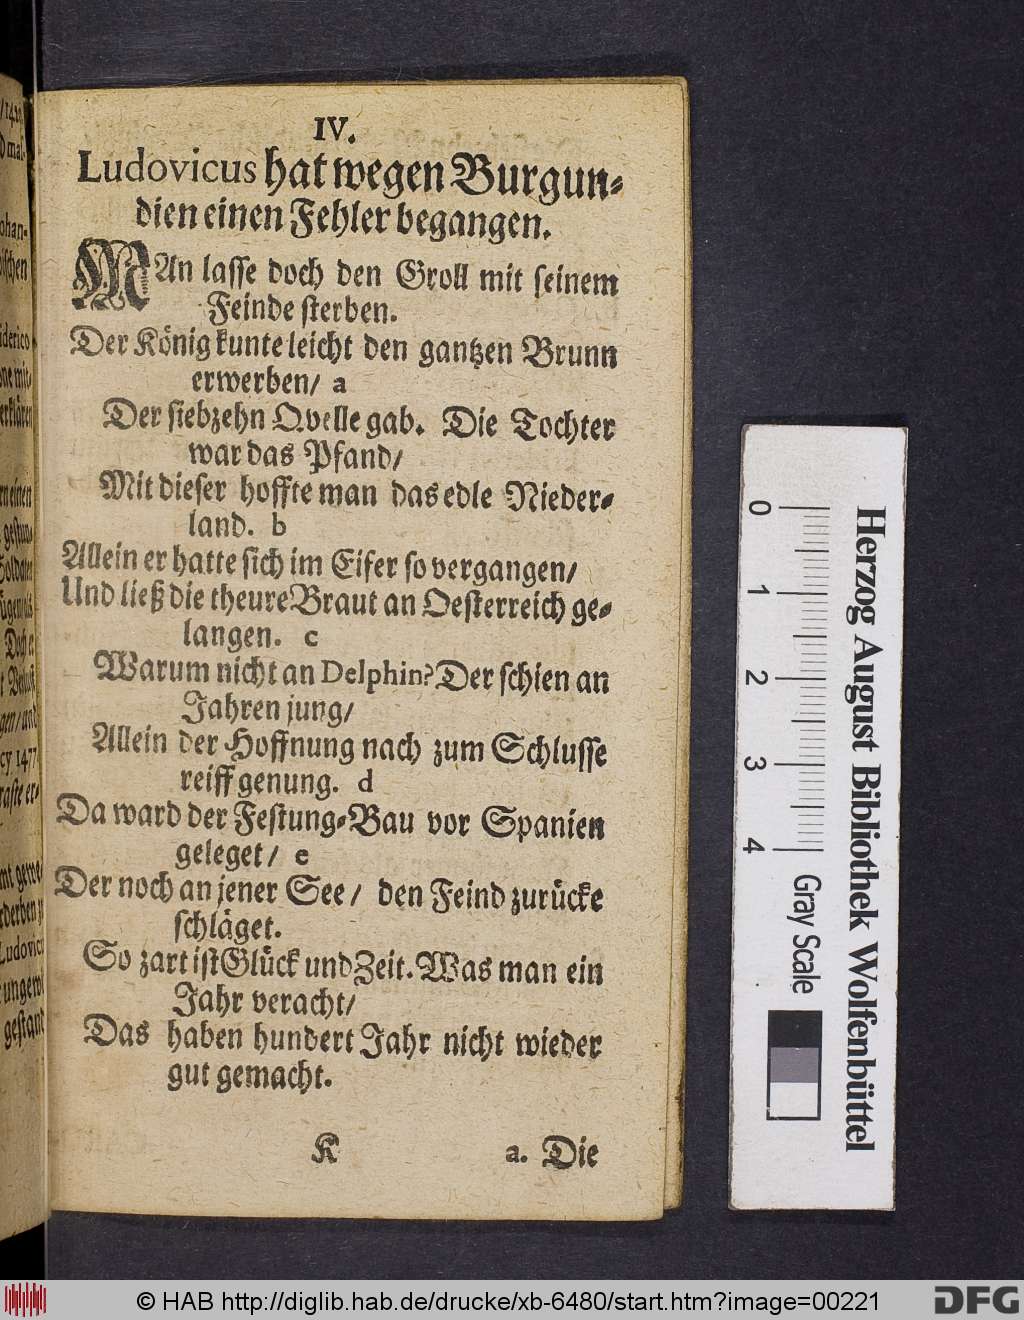 IV.
Ludovicus hat wegen Burgun-
dien einen Fehler begangen.
MAn lasse doch den Groll mit seinem
Feinde sterben.
Der König kunte leicht den gantzen Brunn
erwerben/ a
Der siebzehn Qvelle gab. Die Tochter
war das Pfand/
Mit dieser hoffte man das edle Nieder-
land. b
Allein er hatte sich im Eifer so vergangen/
Und ließ die theure Braut an Oesterreich ge-
langen. c
Warum nicht an Delphin? Der schien an
Jahren jung/
Allein der Hoffnung nach zum Schlusse
reiff genung. d
Da ward der Festung-Bau vor Spanien
geleget/ e
Der noch an jener See/ den Feind zurücke
schläget.
So zart ist Glück und Zeit. Was man ein
Jahr veracht/
Das haben hundert Jahr nicht wieder
gut gemacht.
K a. Die
Herzog August Bibliothek Wolfenbüttel
0 1 2 3 4 Gray Scale
© HAB http://diglib.hab.de/drucke/xb-6480/start.htm?image=00221
DFG